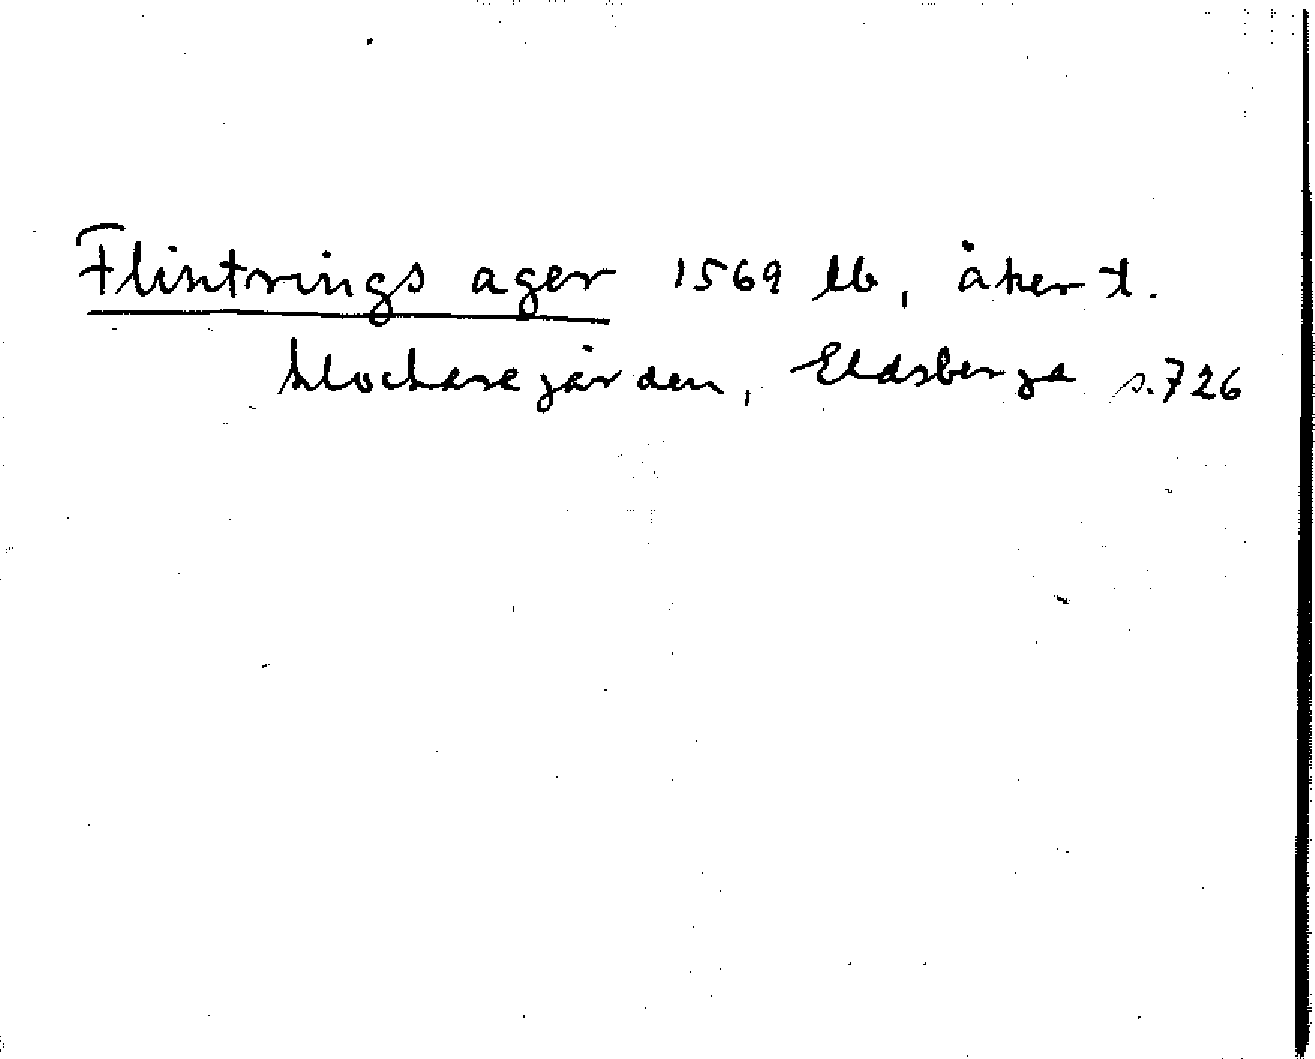 Flintrings ager 1569 lb, åker t.
klockaregården, Eldsberga s. 726